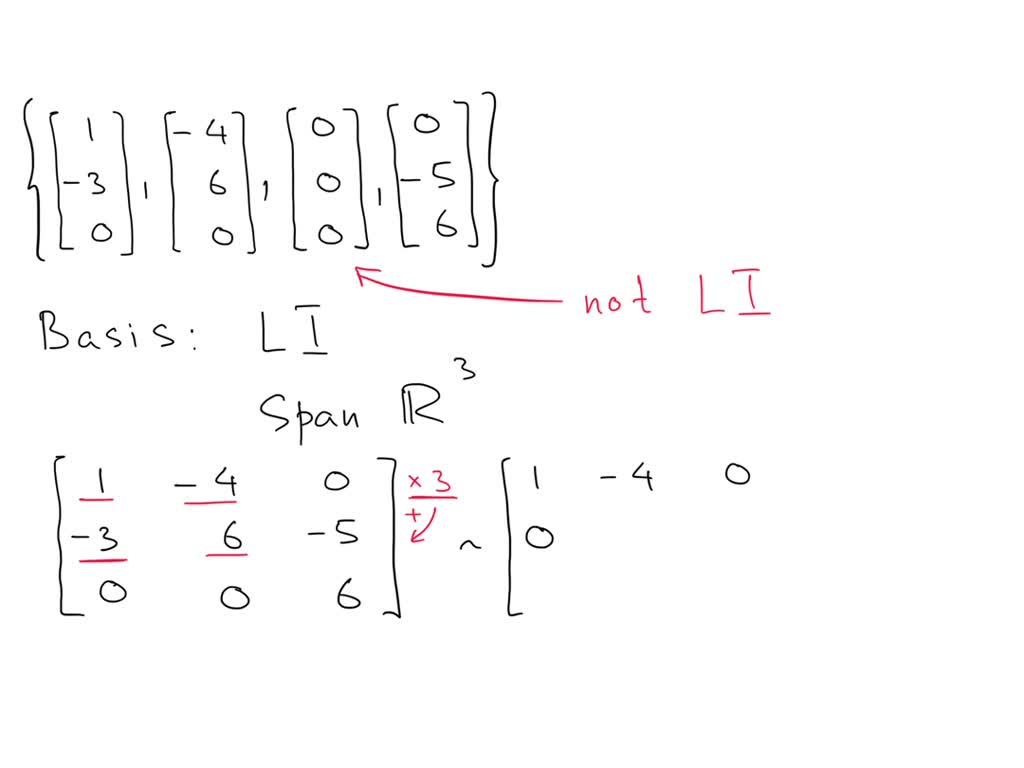 {[1 -3 0], [-4 6 0], [0 0 0], [0 -5 6]}
not LI
Basis: LI
Span ℝ³
[1 -4 0] ×3 [1 -4 0
[-3 6 -5] + ~ [0
[0 0 6]